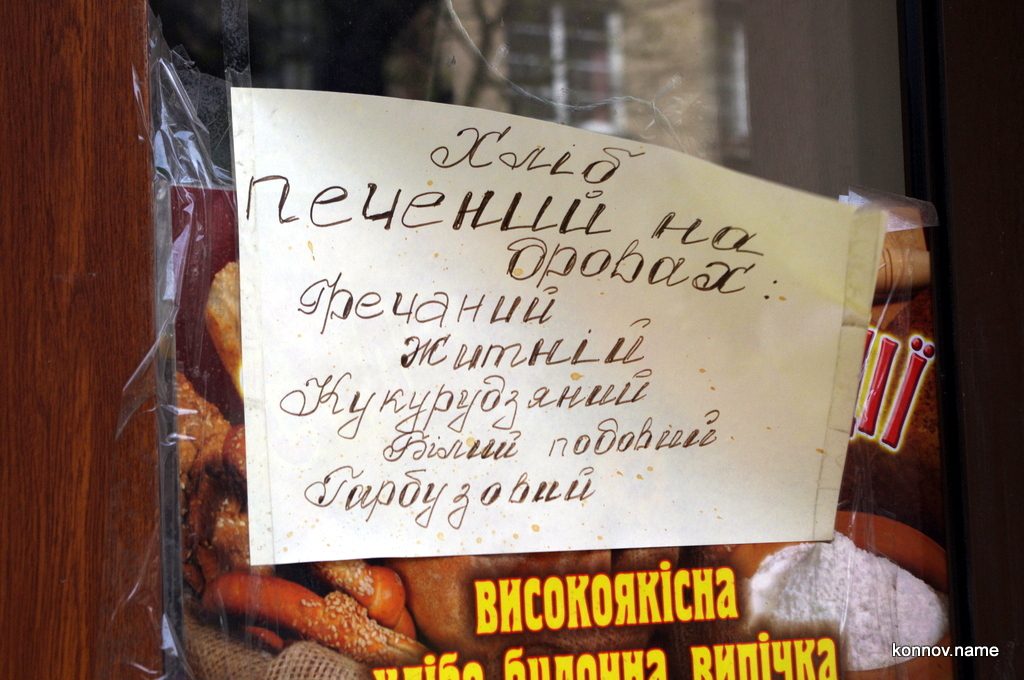 Хліб
печений на
дровах:
Гречаний
житній
Кукурудзяний
Білий подовий
Гарбузовий
ВИСОКОЯКІСНА
хлібо булочна випічка
konnov.name